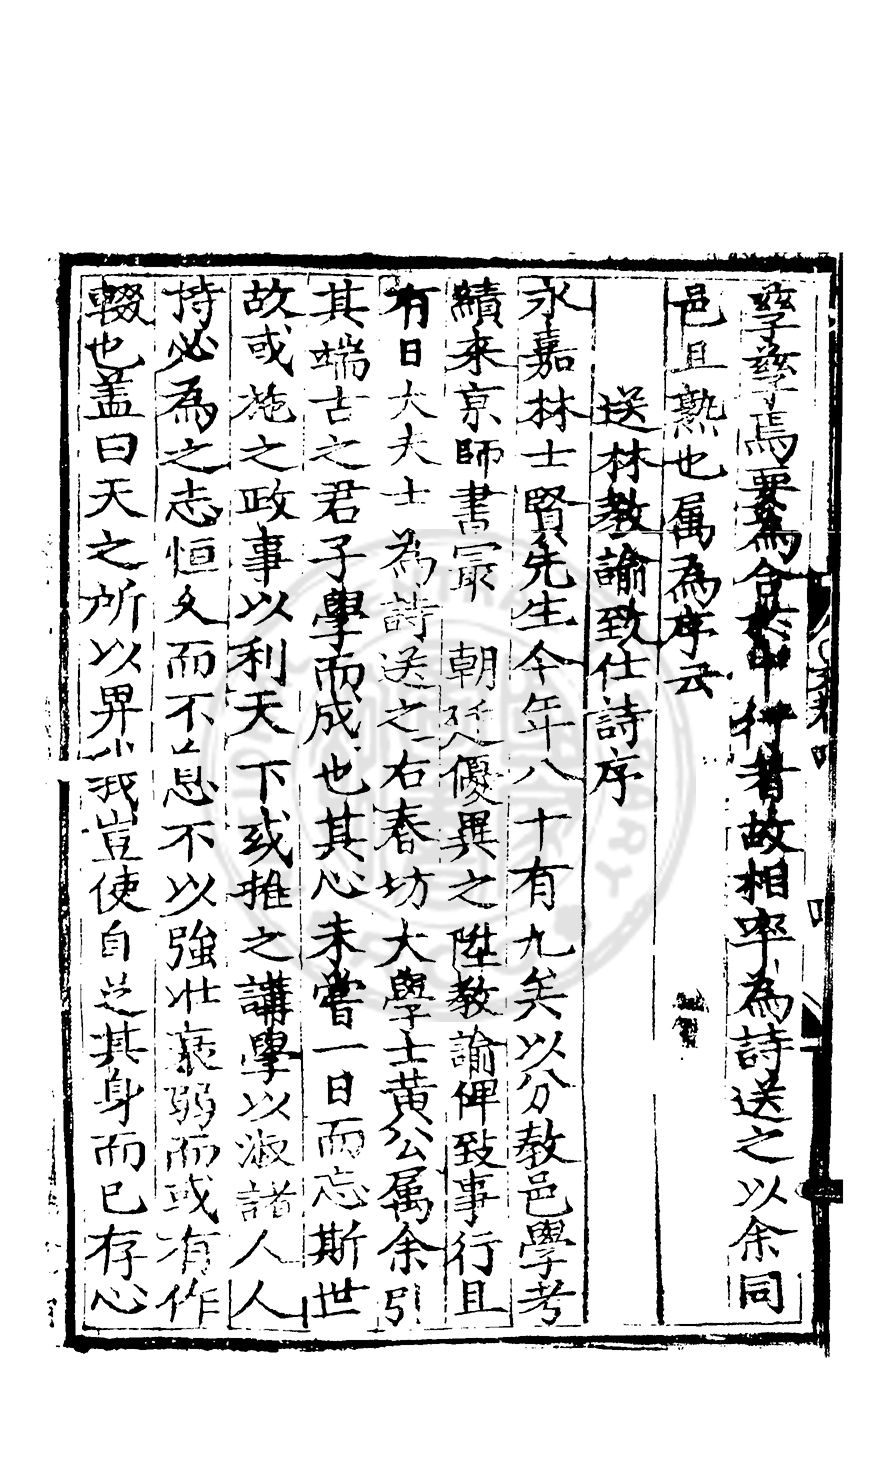 孳孳焉要爲合於中行者故相率為詩送之以余同
邑且熟也属為序云
送林教諭致仕詩序
永嘉林士賢先生今年八十有九矣以分教邑學考
績來京師書㝡 朝廷優異之陞教諭俾致事行且
有日大夫士為詩送之右春坊大學士黄公属余引
其端古之君子學而成也其心未嘗一日而忘斯世
故或施之政事以利天下或推之講學以淑諸人人
持必為之志恒久而不息不以強壮衰弱而或有作
輟也盖曰天之所以畀我豈使自足其身而已存心